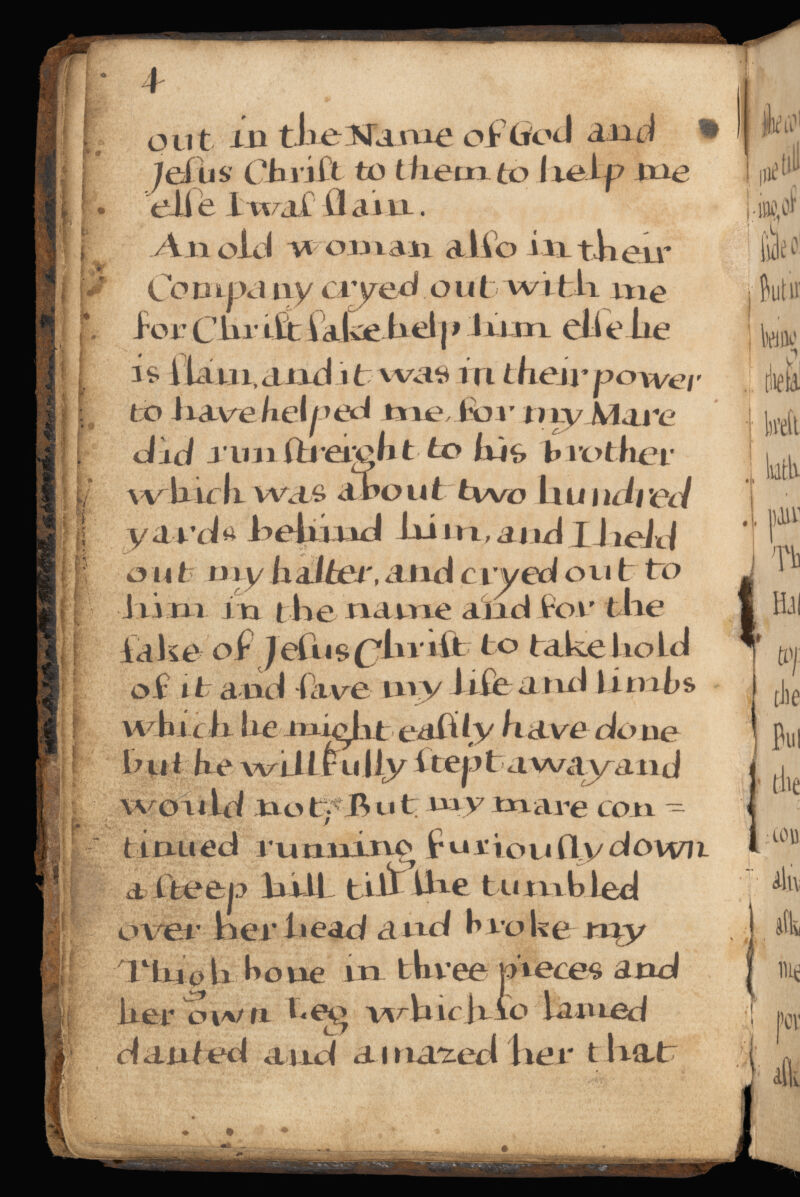 4
out in the Name of God and
Jeſus Chriſt to them to help me
elſe I waſ ſlain.
An old woman alſo in their
Company cryed out with me
for Chriſt ſake help him elſe he
is ſlain, and it was in their power
to have helped me, for my Mare
did run ſtreight to his brother
which was about two hundred
yards behind him, and I held
out my halter, and cryed out to
him in the name and for the
ſake of Jeſus Chriſt to take hold
of it and ſave my life and limbs
which he might eaſily have done
but he willfully ſtept away and
would not; But my mare con =
tinued running furiouſly down
a ſteep hill till ſhe tumbled
over her head and broke my
Thigh bone in three pieces and
her own Leg which ſo lamed
danted and amazed her that
the
me till
ing, of
ſide o
But
being
the
breſt
hath
Th
Ha
to
the
But
the
con
aliv
aſk
me
aſk